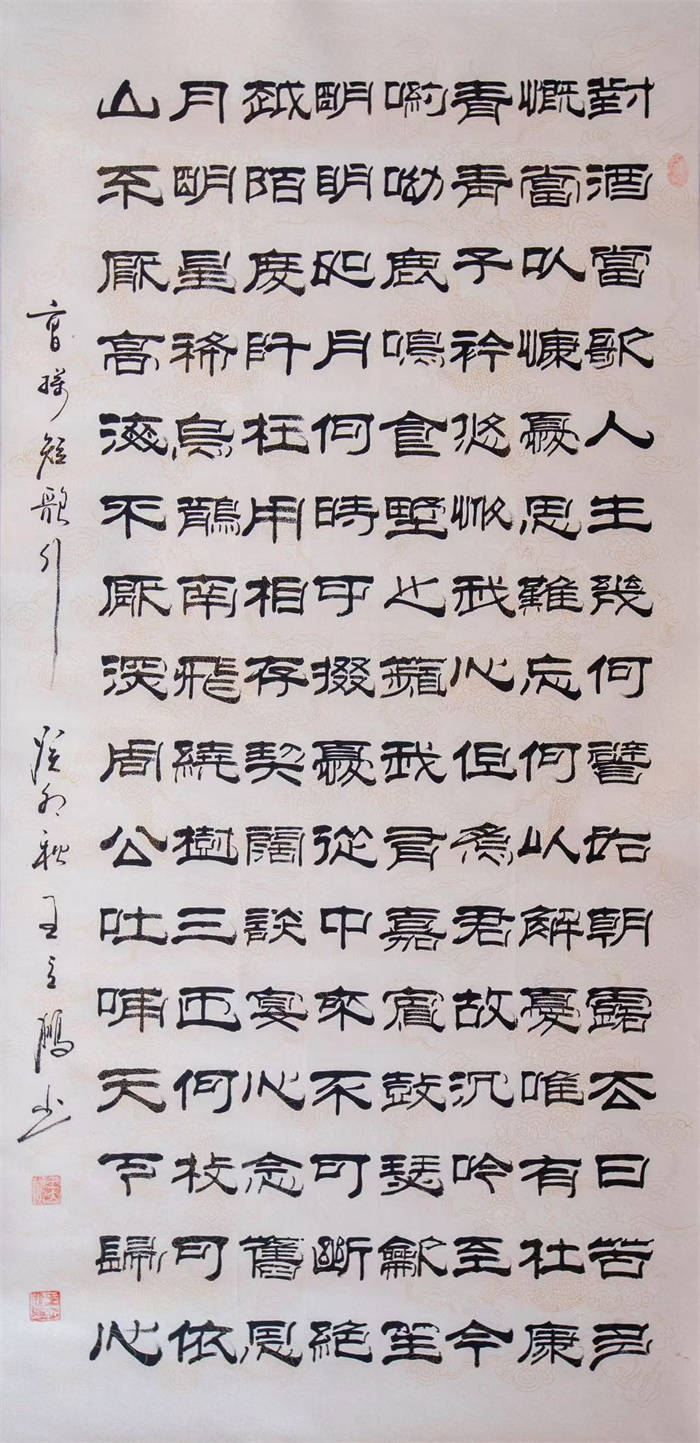 對酒當歌人生幾何譬如朝露去日苦多
慨當以慷憂思難忘何以解憂唯有杜康
青青子衿悠悠我心但為君故沉吟至今
呦呦鹿鳴食野之蘋我有嘉賓鼓瑟龡笙
明明如月何時可掇憂從中來不可斷絕
越陌度阡枉用相存契闊談宴心念舊恩
月明星稀烏鵲南飛繞樹三匝何枝可依
山不厭高海不厭深周公吐哺天下歸心
曹操短歌行 癸卯秋王立鵬书